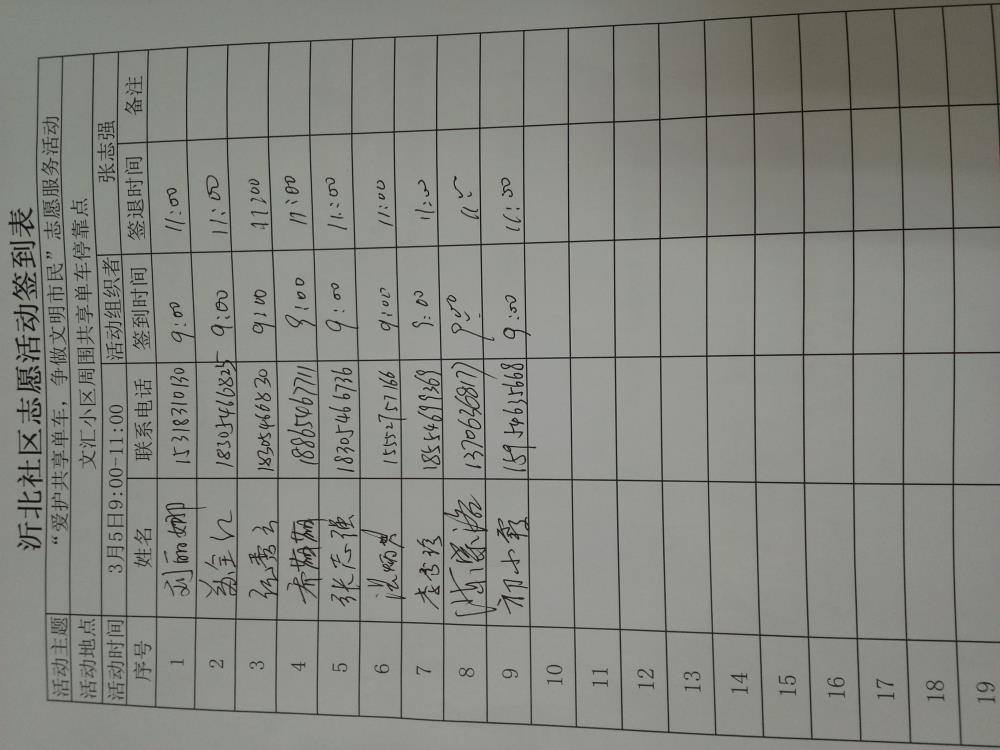 沂北社区志愿活动签到表
活动主题 “爱护共享单车，争做文明市民”志愿服务活动
活动地点 文汇小区周围共享单车停靠点
活动时间 3月5日9:00-11:00 活动组织者 张志强
序号 姓名 联系电话 签到时间 签退时间 备注
1 刘丽娜 15318310130 9:00 11:00
2 18305466825 9:00 11:00
3 任秀云 18305466830 9:00 11:00
4 18865467711 9:00 11:00
5 张志强 18305466736 9:00 11:00
6 15552757166 9:00 11:00
7 李雪珍 18554699369 9:00 11:00
8 13706368177 9:00
9 初小霞 15954635668 9:00 11:00
10
11
12
13
14
15
16
17
18
19